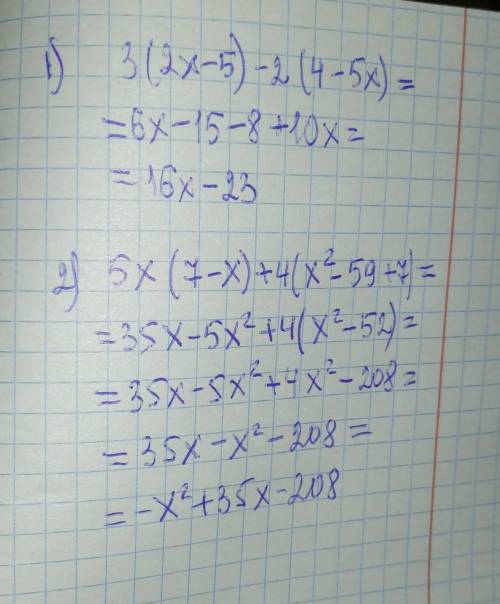 1) 3(2x-5)-2(4-5x)=
=6x-15-8+10x=
=16x-23
2) 5x(7-x)+4(x²-59+7)=
=35x-5x²+4(x²-52)=
=35x-5x²+4x²-208=
=35x-x²-208=
=-x²+35x-208